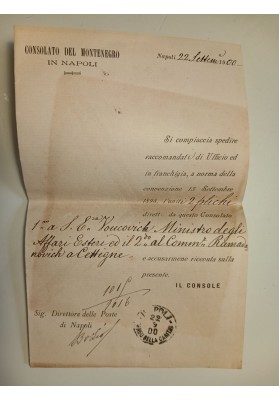 CONSOLATO DEL MONTENEGRO
IN NAPOLI
Napoli, 22 Settem 1900
Si compiaccia spedire
raccomandati di Ufficio ed
in franchigia, a norma della
convenzione 15 Settembre
2 pliche
diretti da questo Consolato
1° a S. E. Voucovich Ministro degli
Affari Esteri ed il 2° al Comm. Ramada
novich a Cettigne
e accusarmene ricevuta sulla
presente.
IL CONSOLE
1015
1016
Sig. Direttore delle Poste
di Napoli
22
00